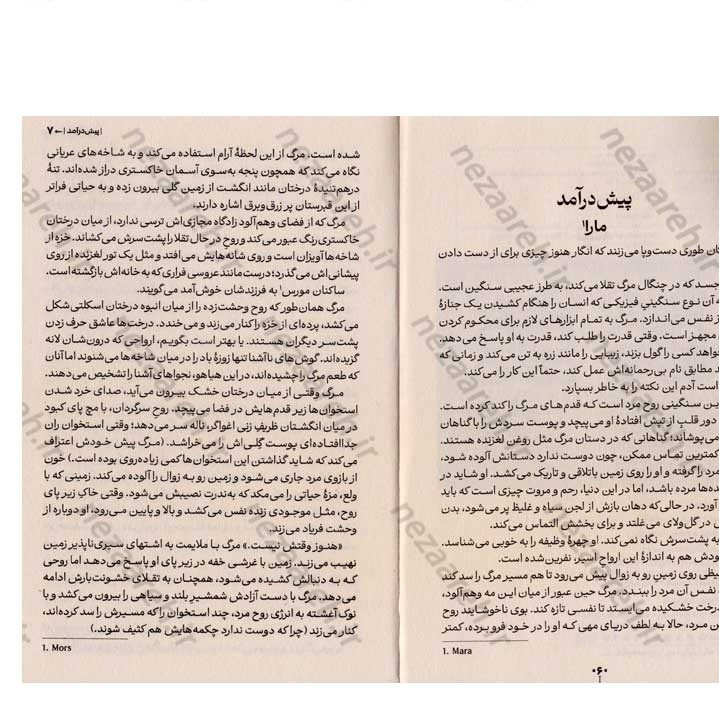 پیش‌درآمد
مارا¹
ان طوری دست‌وپا می‌زنند که انگار هنوز چیزی برای از دست دادن
جسد که در چنگال مرگ تقلا می‌کند، به طرز عجیبی سنگین است.
ه آن نوع سنگینیِ فیزیکی که انسان را هنگام کشیدن یک جنازهٔ
از نفس می‌اندازد. مرگ به تمام ابزارهای لازم برای محکوم کردن
مجهز است. وقتی قدرت را طلب کند، قدرت به او پاسخ می‌دهد.
واهد کسی را گول بزند، زیبایی را مانند زره به تن می‌کند و زمانی که
د مطابق نام بی‌رحمانه‌اش عمل کند، حتماً این کار را می‌کند.
است آدم این نکته را به خاطر بسپارد.
ین سنگینی روح مرد است که قدم‌های مرگ را کند کرده است.
دور قلبِ از تپش افتادهٔ او می‌پیچد و پوست سردش را با گناهان
می‌پوشاند؛ گناهانی که در دستان مرگ مثل روغن لغزنده هستند.
کمترین تماس ممکن، چون دوست ندارد دستانش آلوده شود،
مرد را گرفته و او را روی زمین باتلاقی و تاریک می‌کشد. او شاید در
ده‌ها مرده باشد، اما در این دنیا، رحم و مروت چیزی است که باید
آورد. در حالی‌که دهان بازش از لجن سیاه و غلیظ پر می‌شود، بدن
ل در گل‌ولای می‌غلتد و برای بخشش التماس می‌کند.
به پشت‌سرش نگاه نمی‌کند. او چهرهٔ وظیفه را به خوبی می‌شناسد.
ودش هم به اندازهٔ این ارواح اسیر، نفرین‌شده است.
یظی روی زمینِ رو به زوال پیش می‌رود تا هم مسیر مرگ را سد کند
نفس آن مرد را ببندد. مرگ حین عبور از میان این مه وهم‌آلود،
رخت خشکیده می‌ایستد تا نفسی تازه کند. بوی ناخوشایند روح
ن مرد، حالا به لطف دریای مهی که او را در خود فرو برده، کمتر
1. Mara
۰۶۰
| پیش‌درآمد | ← ۷
شده است. مرگ از این لحظهٔ آرام استفاده می‌کند و به شاخه‌های عریانی
نگاه می‌کند که همچون پنجه به‌سوی آسمان خاکستری دراز شده‌اند. تنهٔ
درهم‌تنیدهٔ درختان مانند انگشت از زمین گلی بیرون زده و به حیاتی فراتر
از این قبرستان پر زرق‌وبرق اشاره دارند.
مرگ که از فضای وهم‌آلود زادگاه مجازی‌اش ترسی ندارد، از میان درختان
خاکستری‌رنگ عبور می‌کند و روحِ در حال تقلا را پشت‌سرش می‌کشاند. خزه از
شاخه‌ها آویزان است و روی شانه‌هایش می‌افتد و مثل یک تور لغزنده از روی
پیشانی‌اش می‌گذرد؛ درست مانند عروسی فراری که به خانه‌اش بازگشته است.
ساکنان مورس¹ به فرزندشان خوش‌آمد می‌گویند.
مرگ همان‌طور که روح وحشت‌زده را از میان انبوه درختان اسکلتی‌شکل
می‌کشد، پرده‌ای از خزه را کنار می‌زند و می‌خندد. درخت‌ها عاشق حرف زدن
پشت‌سر دیگران هستند. یا بهتر است بگویم، ارواحی که درون‌شان لانه
گزیده‌اند. گوش‌های ناآشنا تنها زوزهٔ باد را در میان شاخه‌ها می‌شنوند اما آنان
که طعم مرگ را چشیده‌اند، در این هیاهو، نجواهای آشنا را تشخیص می‌دهند.
مرگ وقتی از میان درختان خشک بیرون می‌آید، صدای خرد شدن
استخوان‌ها زیر قدم‌هایش در فضا می‌پیچد. روح سرگردان، با مچ پای کبود
در میان انگشتان ظریفِ زنی اغواگر ناله سر می‌دهد؛ وقتی استخوان ران
جداافتاده‌ای پوست گِلی‌اش را می‌خراشد. (مرگ پیش خودش اعتراف
می‌کند که شاید گذاشتن این استخوان‌ها کمی زیاده‌روی بوده است.) خون
از بازوی مرد جاری می‌شود و زمین رو به زوال را آلوده می‌کند. زمینی که با
ولع، مزهٔ حیاتی را می‌مکد که به‌ندرت نصیبش می‌شود. وقتی خاکِ زیر پای
روح، مثل موجودی زنده نفس می‌کشد و بالا و پایین می‌رود، او دوباره از
وحشت فریاد می‌زند.
«هنوز وقتش نیست.» مرگ با ملایمت به اشتهای سیری‌ناپذیر زمین
نهیب می‌زند. زمین با غرشی خفه در زیر پای او پاسخ می‌دهد اما روحی
که به دنبالش کشیده می‌شود، همچنان به تقلای خشونت‌بارش ادامه
می‌دهد. مرگ با دست آزادش شمشیرِ بلند و سیاهی را بیرون می‌کشد و با
نوک آغشته به انرژی روح مرد، چند استخوان را که مسیرش را سد کرده‌اند،
کنار می‌زند (چرا که دوست ندارد چکمه‌هایش هم کثیف شوند.)
1. Mors
nezaareh.ir